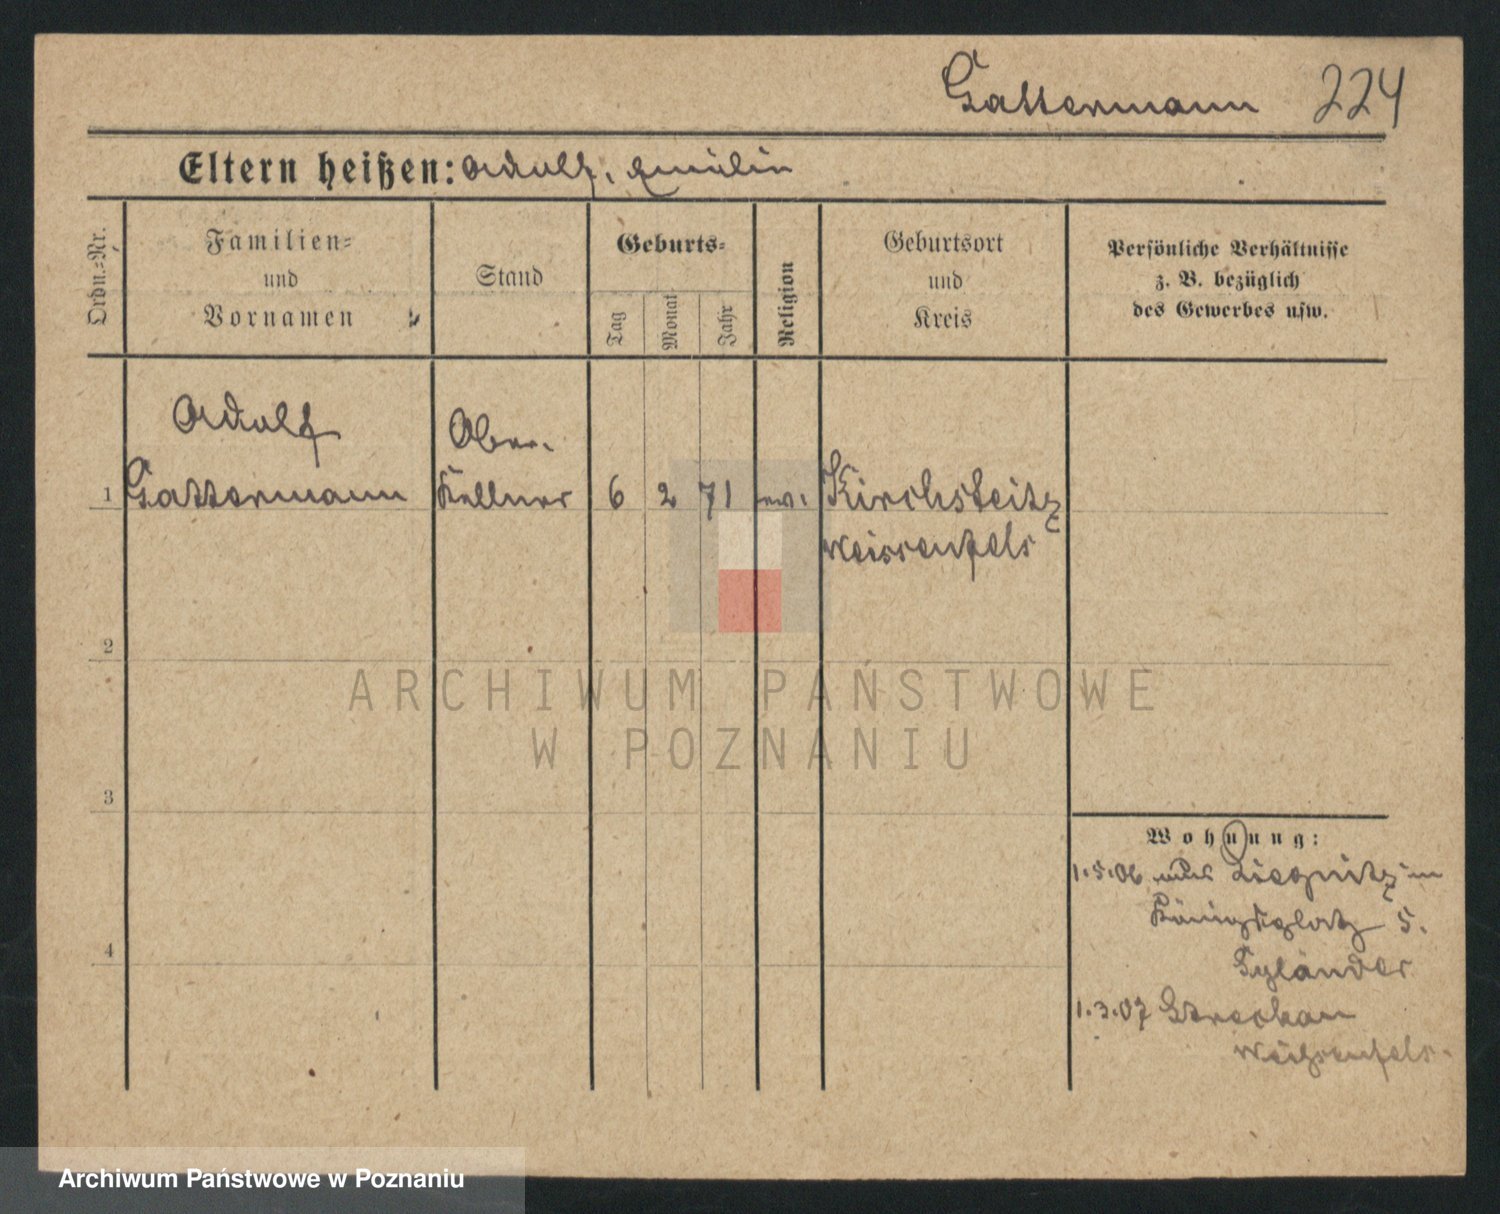 Gattermann 224
Eltern heißen: Adolf, Emilin
Ordn.-Nr.
Familien-
und
Vornamen
Stand
Geburts-
Tag
Monat
Jahr
Religion
Geburtsort
und
Kreis
Persönliche Verhältnisse
z. B. bezüglich
des Gewerbes usw.
Adolf
Ober-
1 Gattermann Kellner 6 2 71 ev. Kirchsteitz
Weissenfels
2
ARCHIWUM PAŃSTWOWE
W POZNANIU
3
Wohnung:
1.5.06 aus Liegnitz in
Königsplatz 5.
4
1.3.07
Weißenfels.
Archiwum Państwowe w Poznaniu